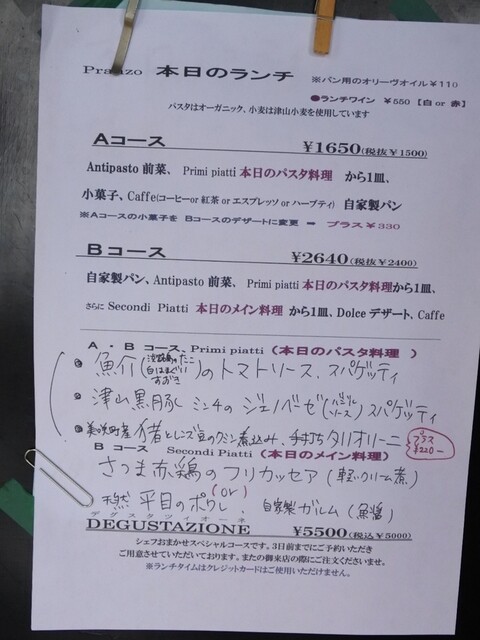 Pranzo 本日のランチ ※パン用のオリーヴオイル￥110
●ランチワイン ￥550【白or 赤】
パスタはオーガニック、小麦は津山小麦を使用しています
Aコース ￥1650(税抜￥1500)
Antipasto 前菜、 Primi piatti 本日のパスタ料理 から1皿、
小菓子、Caffe(コーヒーor 紅茶 or エスプレッソ or ハーブティ) 自家製パン
※Aコースの小菓子を Bコースのデザートに変更 ⇒ プラス￥330
Bコース ￥2640(税抜￥2400)
自家製パン、Antipasto 前菜、 Primi piatti 本日のパスタ料理から1皿、
さらに Secondi Piatti 本日のメイン料理 から1皿、Dolce デザート、Caffe
A・B コース、Primi piatti (本日のパスタ料理 )
魚介(淡路島のたこ 白はまぐり すずき)のトマトソース、スパゲッティ
津山黒豚ミンチのジェノベーゼ(バジルソース)スパゲッティ
美咲町産 猪とレンズ豆のクミン煮込み、手打ちタリオリーニ プラス ¥220-
B コース Secondi Piatti (本日のメイン料理)
さつま赤鶏のフリカッセア(軽いクリーム煮)
(or)
天然 平目のポワレ、自家製ガルム(魚醬)
デグスタツィオーネ
DEGUSTAZIONE ￥5500(税込￥5000)
シェフおまかせスペシャルコースです。3日前までにご予約いただき
ご用意させていただいております。またの御来店の際にご注文くださいませ。
※ランチタイムはクレジットカードはご使用いただけません。